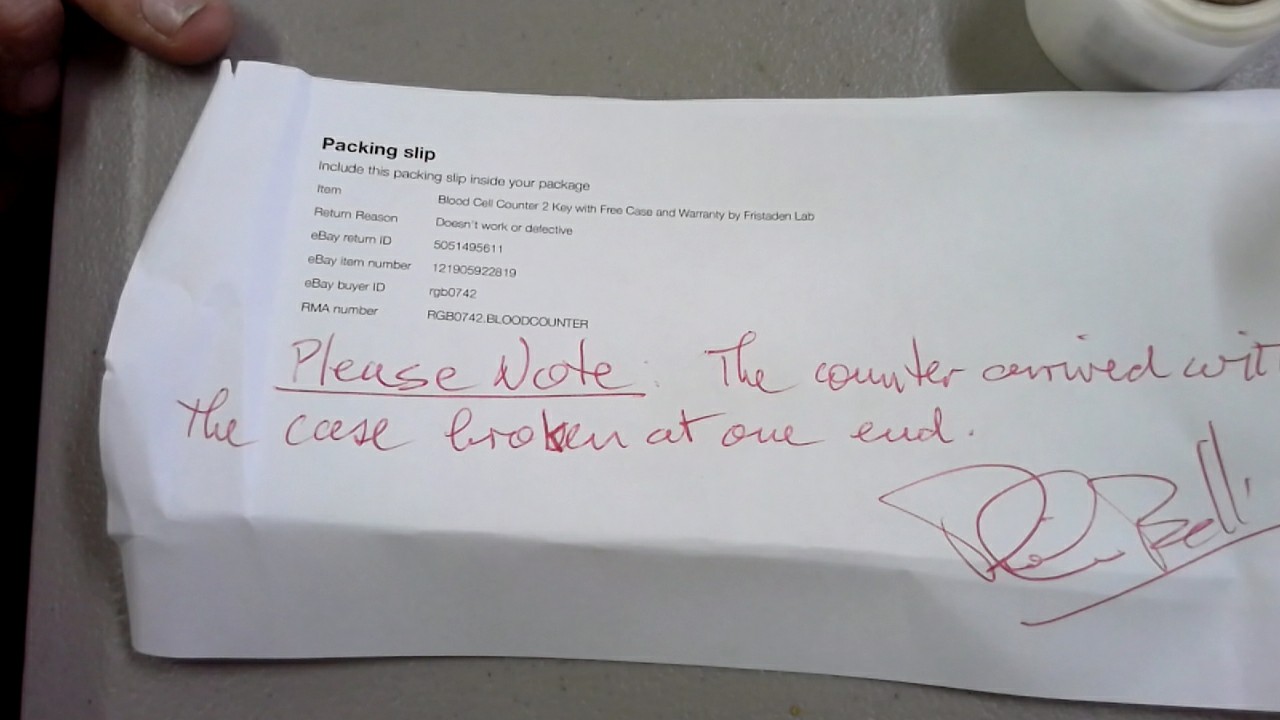 Packing slip
Include this packing slip inside your package
Item Blood Cell Counter 2 Key with Free Case and Warranty by Fristaden Lab
Return Reason Doesn't work or defective
eBay return ID 5051495611
eBay item number 121905922819
eBay buyer ID rgb0742
RMA number RGB0742.BLOODCOUNTER
Please Note: The counter arrived wit
the case broken at one end.
Belli